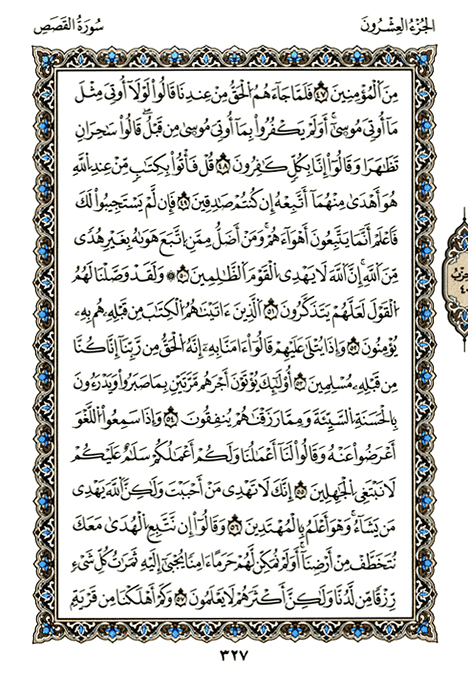 الجزء العشرون
سورة القصص
من المؤمنين ٤٧ فلما جاءهم الحق من عندنا قالوا لولا أوتي مثل
ما أوتي موسى أولم يكفروا بما أوتي موسى من قبل قالوا سحران
تظهرا وقالوا إنا بكل كفرون ٤٨ قل فأتوا بكتب من عند الله
هو أهدى منهما أتبعه إن كنتم صدقين ٤٩ فإن لم يستجيبوا لك
فاعلم أنما يتبعون أهواءهم ومن أضل ممن اتبع هوىه بغير هدى
من الله إن الله لا يهدي القوم الظلمين ٥٠ ولقد وصلنا لهم
القول لعلهم يتذكرون ٥١ الذين ءاتينهم الكتب من قبله هم به
يؤمنون ٥٢ وإذا يتلى عليهم قالوا ءامنا به إنه الحق من ربنا إنا كنا
من قبله مسلمين ٥٣ أولئك يؤتون أجرهم مرتين بما صبروا ويدرءون
بالحسنة السيئة ومما رزقنهم ينفقون ٥٤ وإذا سمعوا اللغو
أعرضوا عنه وقالوا لنا أعملنا ولكم أعملكم سلم عليكم
لا نبتغي الجهلين ٥٥ إنك لا تهدي من أحببت ولكن الله يهدي
من يشاء وهو أعلم بالمهتدين ٥٦ وقالوا إن نتبع الهدى معك
نتخطف من أرضنا أولم نمكن لهم حرما ءامنا يجبى إليه ثمرت كل شيء
رزقا من لدنا ولكن أكثرهم لا يعلمون ٥٧ وكم أهلكنا من قرية
٣٢٧